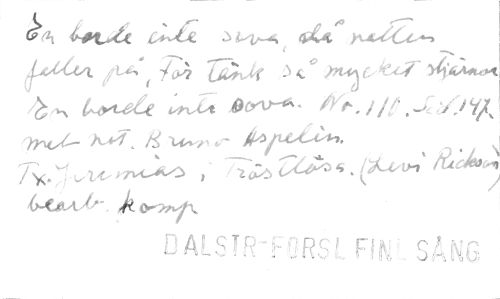 En borde inte sova, då natten
faller på, För tänk så mycket stjärnor
En borde inte sova. No. 110. Sid. 147.
met not. Bruno Aspelin.
Tx. Jeremias i Tröstlösa. (Levi Rickson)
bearb. komp
DALSTR-FORSL FINL SÅNG